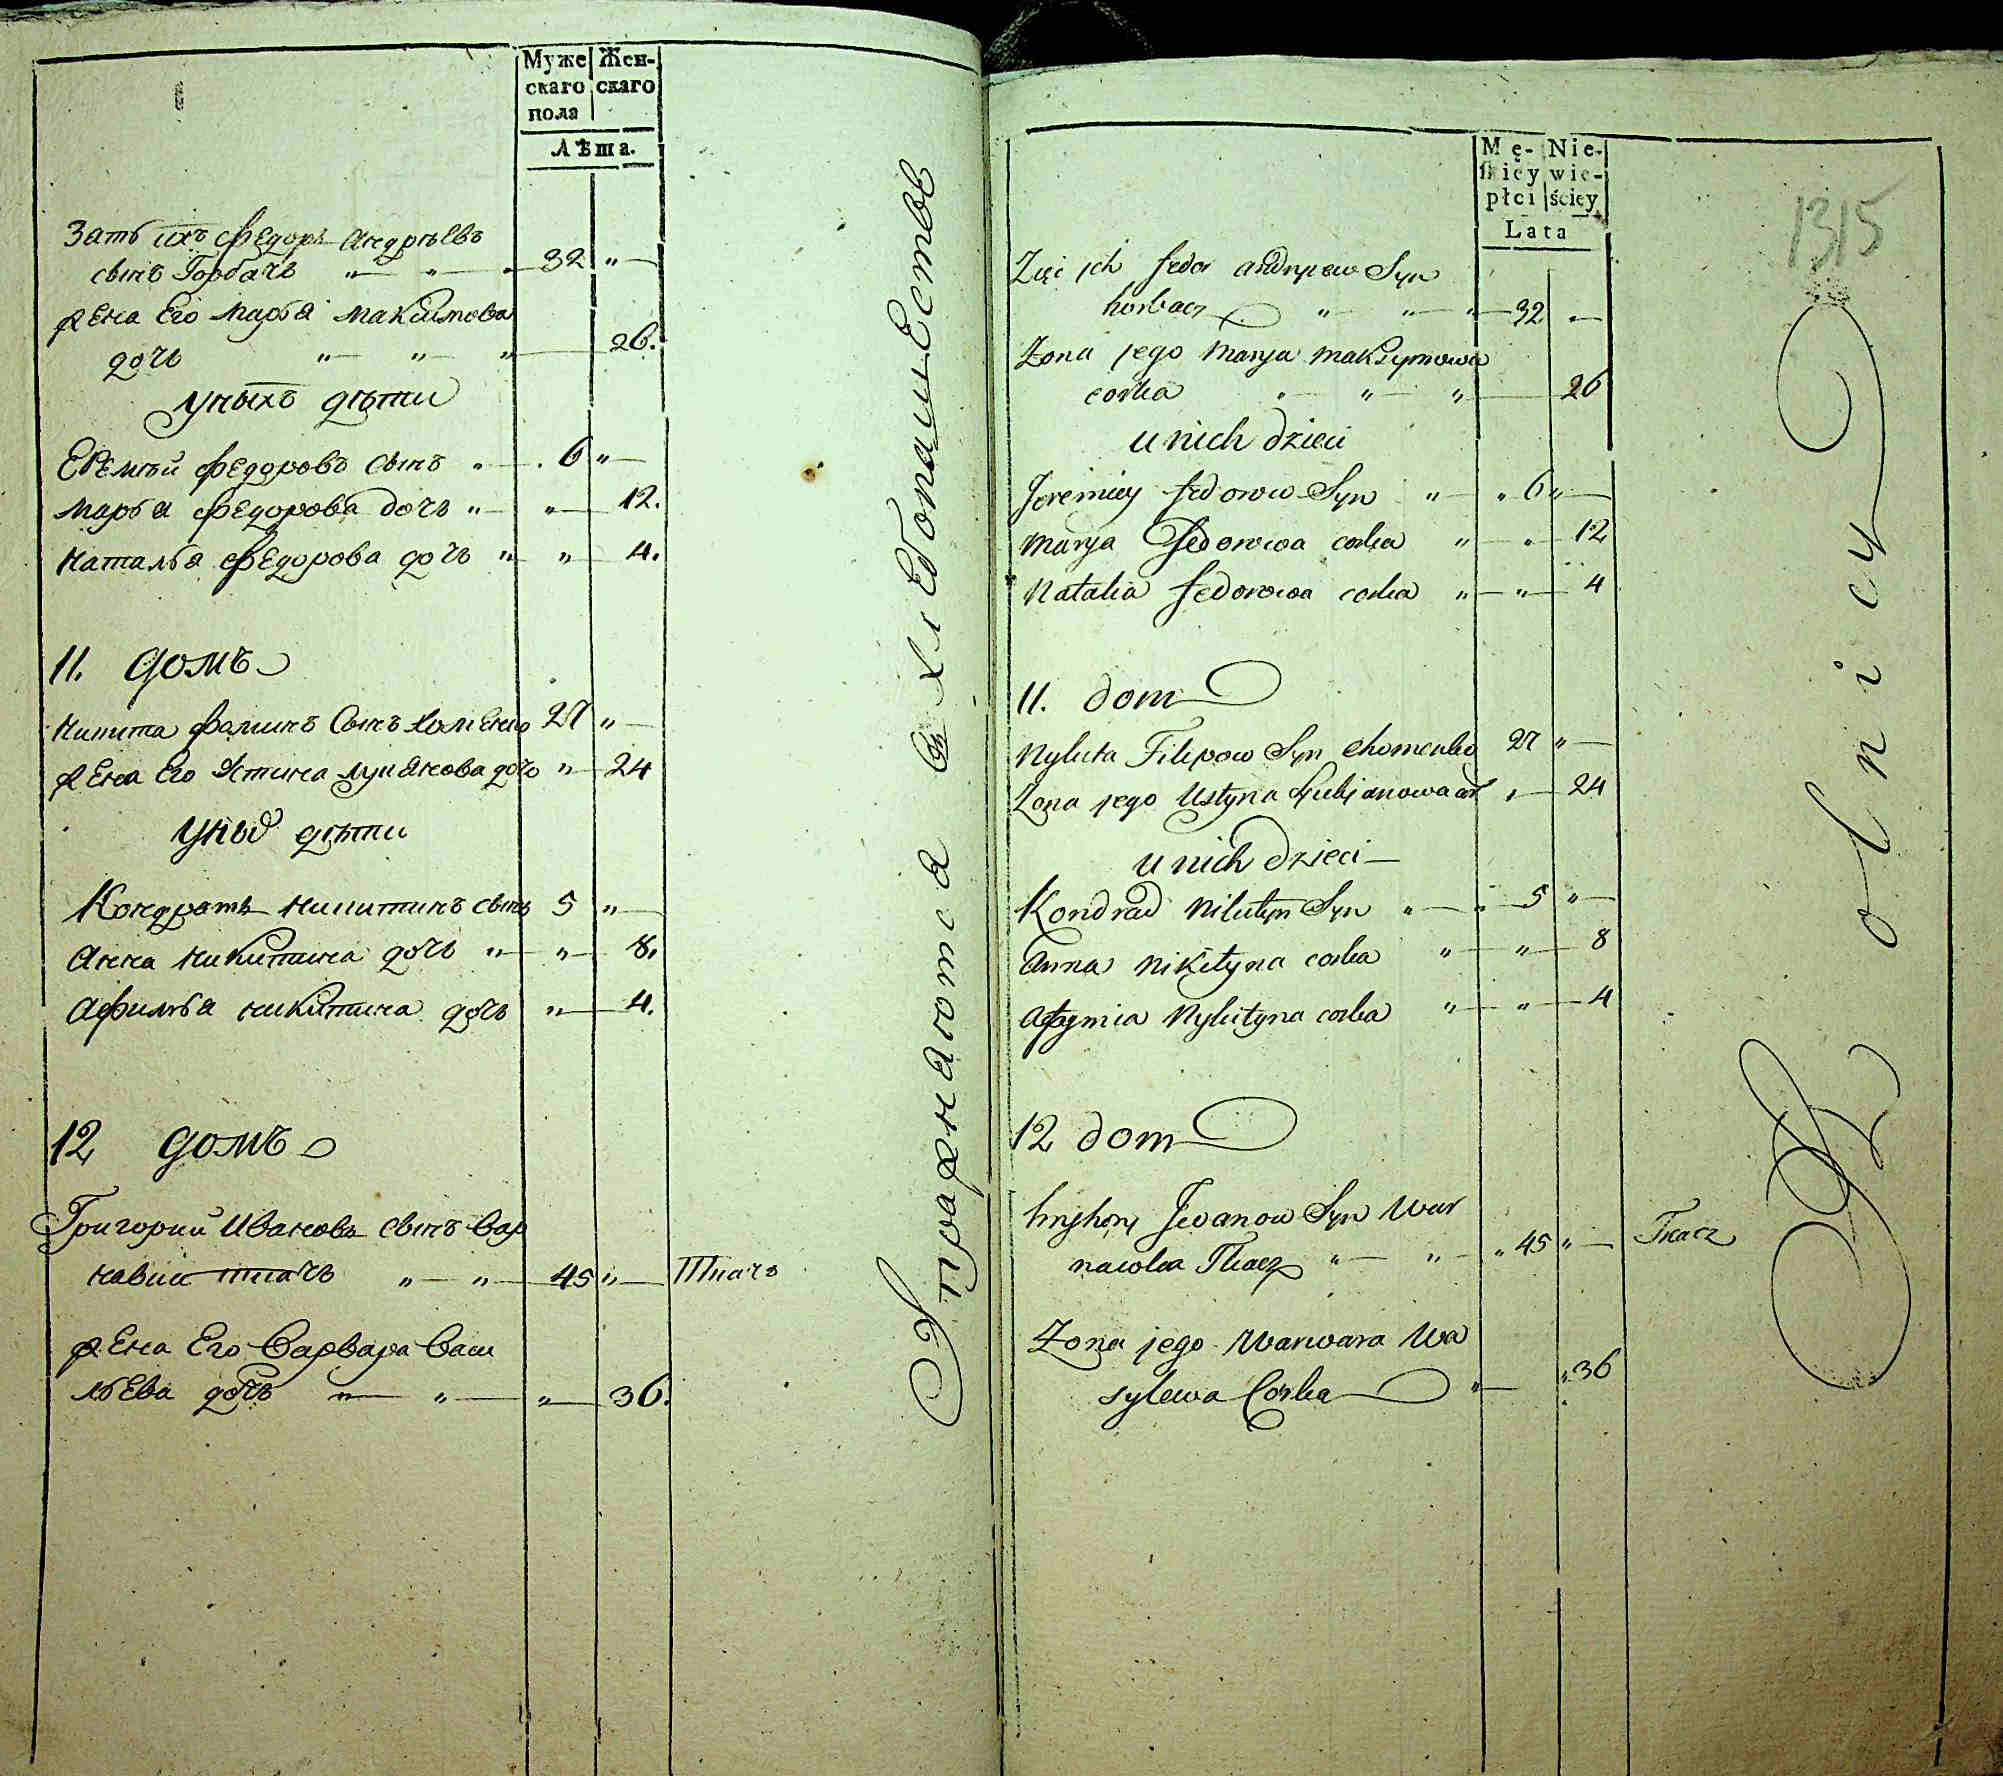 Муже Жен-
скаго скаго
пола
Лѣта.
Зать ихъ Федоръ Андрѣевъ
сынъ Горбачъ " " 32 "
жена Его Марья Максимова
дочь " " " 26.
Уныхъ дѣти
Еремѣй Федоровъ сынъ " 6 "
Марья Федорова дочь " " 12.
Наталья Федорова дочь " " 4.
11. домъ
Никита Фаминъ Сынъ Хоменко 27 "
жена Его Устина Лукянова дочь " 24
Уныхъ дѣти
Кондратъ Никитинъ сынъ 5 "
Анна Никитина дочь " " 8.
Афимья Никитина дочь " 4.
12 домъ
Григорий Ивановъ сынъ Вар
навка ткачъ " " 45 " Ткачъ
жена Его Варвара Васи
льева дочь " " " 36.
Упражняются в хлебопашестве
Mę- Nie-
skiey wie-
płci ściey
Lata
1315
Zięć ich fedor andryiew Syn
horbacz " " " 32 "
Zona jego Marya Maksymowa
corka " " " 26
u nich dzieci
Jeremiey fedorow Syn " " 6 "
Marya Fedorowa corka " " 12
Natalia fedorowa corka " " 4
11. dom
Nykita Filipow Syn Chomenko 27 "
Zona jego Ustyna Łukjanowa cor " 24
u nich dzieci
Kondrad Nikityn Syn " " 5 "
Anna Nikityna corka " " 8
Afymia Nykityna corka " " 4
12 dom
hryhory Jwanow Syn War
nawka Tkacz " " " 45 " Tkacz
Zona jego Warwara Wa
sylewa Corka " " 36
Rolnicy